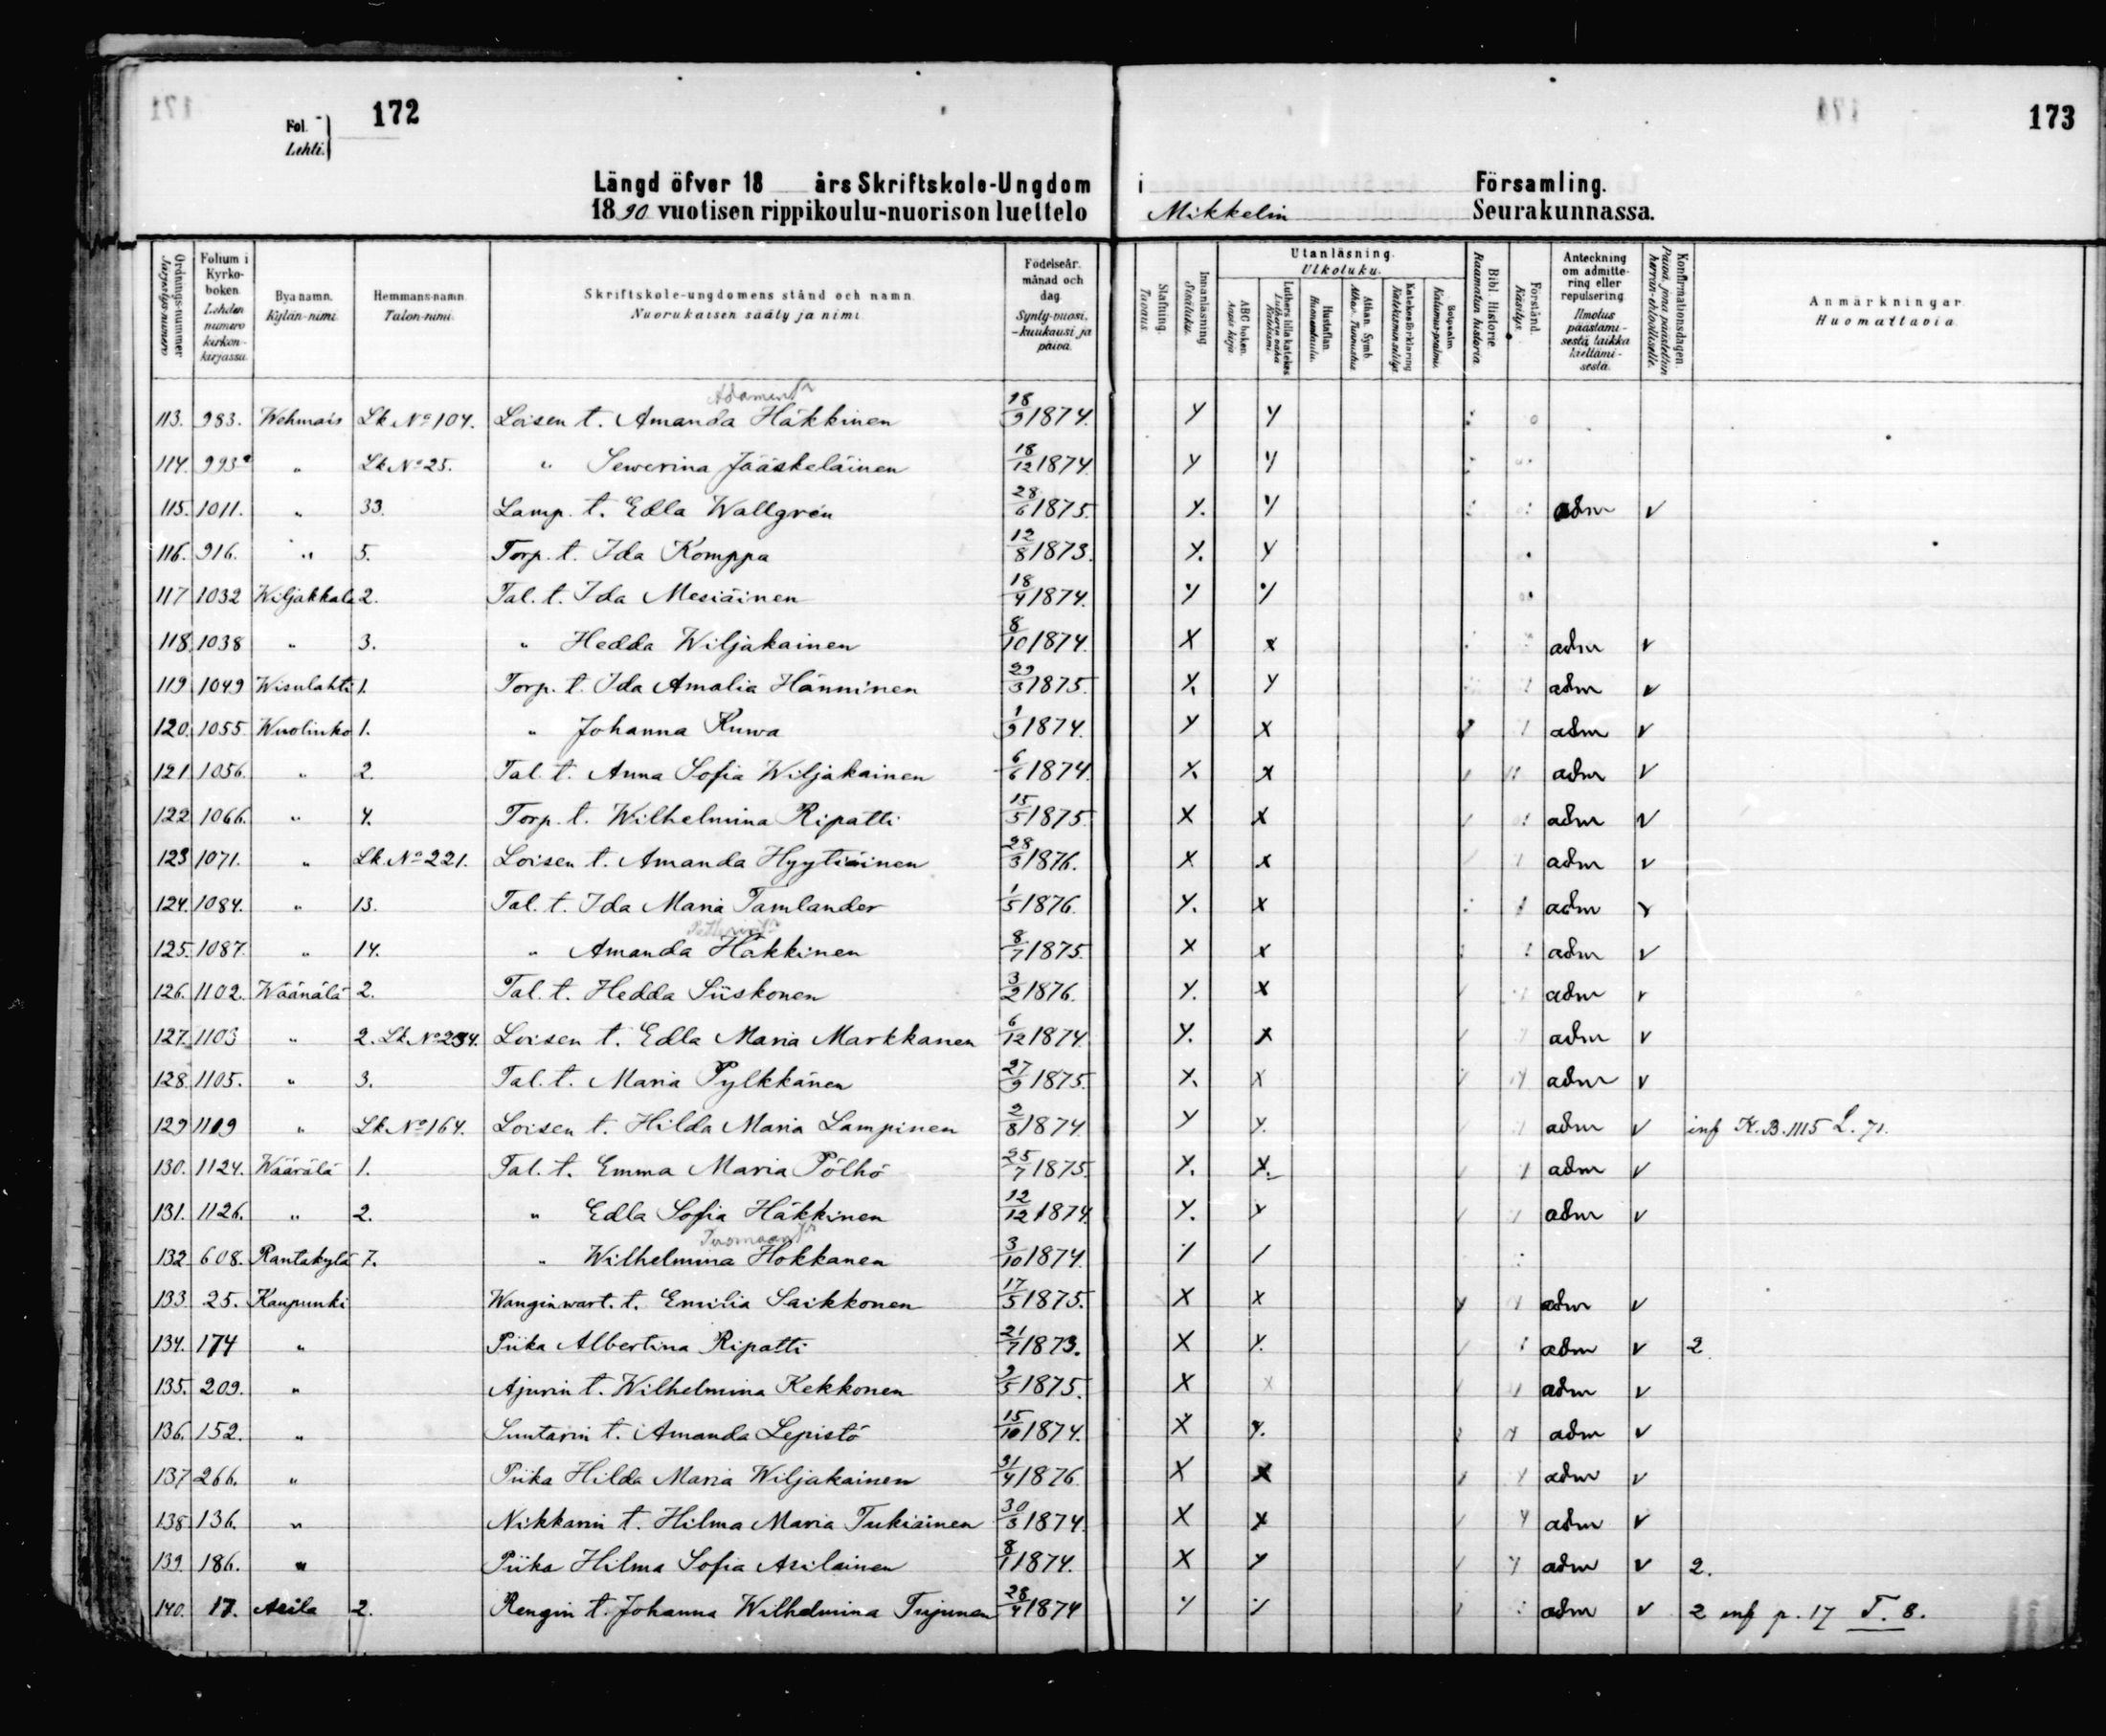 172
173
Fol.
Lehti.
Längd öfver 18 års Skriftskole-Ungdom i Församling.
1890 vuotisen rippikoulu-nuorison luettelo Mikkelin Seurakunnassa.
Ordnings-nummer Järjestys-numero
Folium i Kyrko-boken. Lehden numero kirkon-kirjassa.
Bya namn. Kylän-nimi.
Hemmans-namn. Talon-nimi.
Skriftskole-ungdomens stånd och namn. Nuorukaisen sääty ja nimi.
Födelseår. månad och dag. Synty-vuosi, -kuukausi ja päivä.
Stafning. Tavaus.
Innanläsning. Sisäluku.
Utanläsning. Ulkoluku.
ABC boken. Aapis kirja.
Luthers lilla katekes Lutherin vähä Katekismi
Hustaflan. Huoneentaulu.
Athan. Symb. Athan. Tunnustus
Katekesförklaring Katekismin selitys
Botpsalm. Katumus-psalmi.
Bibl. Historie. Raamatun historia.
Förstånd. Käsitys.
Anteckning om admitte-ring eller repulsering. Ilmotus päästämi-sestä taikka kieltämi-sestä.
Konfirmationsdagen. Päivä, jona päästettiin herran-ehtoolliselle.
Anmärkningar. Huomattavia.
113. 983. Wehmais Lk. No 104. Loisen t. Amanda Häkkinen 18/9 1874. y y
114. 993 " Lk No 25. " Sewerina Jääskeläinen 18/12 1874 y y
115. 1011. " 33. Lamp. t. Edla Wallgrén 28/6 1875. y. y adm v
116. 916. " 5. Torp. t. Ida Komppa 12/8 1873. y. y
117 1032 Wiljakkala 2. Tal. t. Ida Mesiäinen 18/4 1874. y y
118. 1038 " 3. " Hedda Wiljakainen 8/10 1874. x x adm v
119 1049 Wisulahti 1. Torp. t. Ida Amalia Hänninen 29/3 1875. x. y adm v
120. 1055 Wuolinko 1. " Johanna Ruwa 1/9 1874. y x adm v
121 1056. " 2. Tal. t. Anna Sofia Wiljakainen 6/6 1874. x. x adm v
122 1066. " 4. Torp. t. Wilhelmina Ripatti 15/5 1875. x x adm v
123 1071. " Lk. No 221. Loisen t. Amanda Hyytiäinen 28/3 1876. x x adm v
124. 1084. " 13. Tal. t. Ida Maria Tamlander 1/5 1876. y. x adm v
125. 1087. " 14. " Amanda Häkkinen 8/7 1875. x x adm v
126. 1102. Wäänälä 2. Tal. t. Hedda Siiskonen 3/2 1876. y. x adm v
127. 1103 " 2. Lk. No 234. Loisen t. Edla Maria Markkanen 6/12 1874 y. x adm v
128. 1105. " 3. Tal. t. Maria Pylkkänen 27/9 1875. x. x adm v
129 1109 " Lk No 164. Loisen t. Hilda Maria Lampinen 2/8 1874 y y. adm v inf K.B. 1115 L. 71.
130. 1124. Wäärälä 1. Tal. t. Emma Maria Pölhö 25/7 1875. y. x. adm v
131. 1126. " 2. " Edla Sofia Häkkinen 12/12 1874. y. y adm v
132. 608. Rantakylä 7. " Wilhelmina Hokkanen 3/10 1874.
133. 25. Kaupunki Wanginwart. t. Emilia Saikkonen 17/5 1875. x x y adm v
134. 174 " Piika Albertina Ripatti 21/7 1873. x y. adm v 2
135. 209. " Ajurin t. Wilhelmina Kekkonen 9/5 1875. x x adm v
136. 152. " Suntarin t. Amanda Lepistö 15/10 1874. x y. adm v
137 266. " Piika Hilda Maria Wiljakainen 31/4 1876 x x adm v
138. 136. " Nikkarin t. Hilma Maria Tukiainen 30/3 1874. x x y adm v
139. 186. " Piika Hilma Sofia Asilainen 8/1 1874. x y y adm v 2.
140. 17. Asila 2. Rengin t. Johanna Wilhelmina Tujunen 28/4 1874 adm v 2 inf p. 17 T. 8.